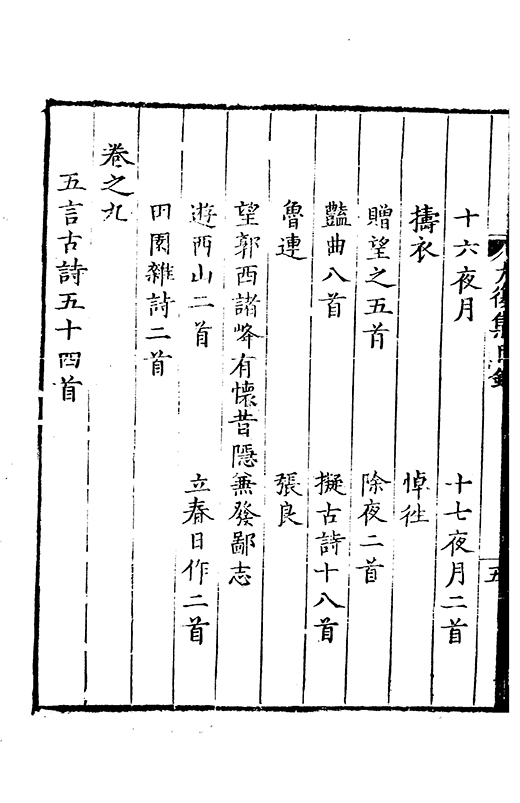 十六夜月　十七夜月二首
擣衣　悼往
贈望之五首　除夜二首
豔曲八首　擬古詩十八首
魯連　張良
望郭西諸峰有懷昔隱兼發鄙志
遊西山二首　立春日作二首
田園雜詩二首
卷之九
五言古詩五十四首